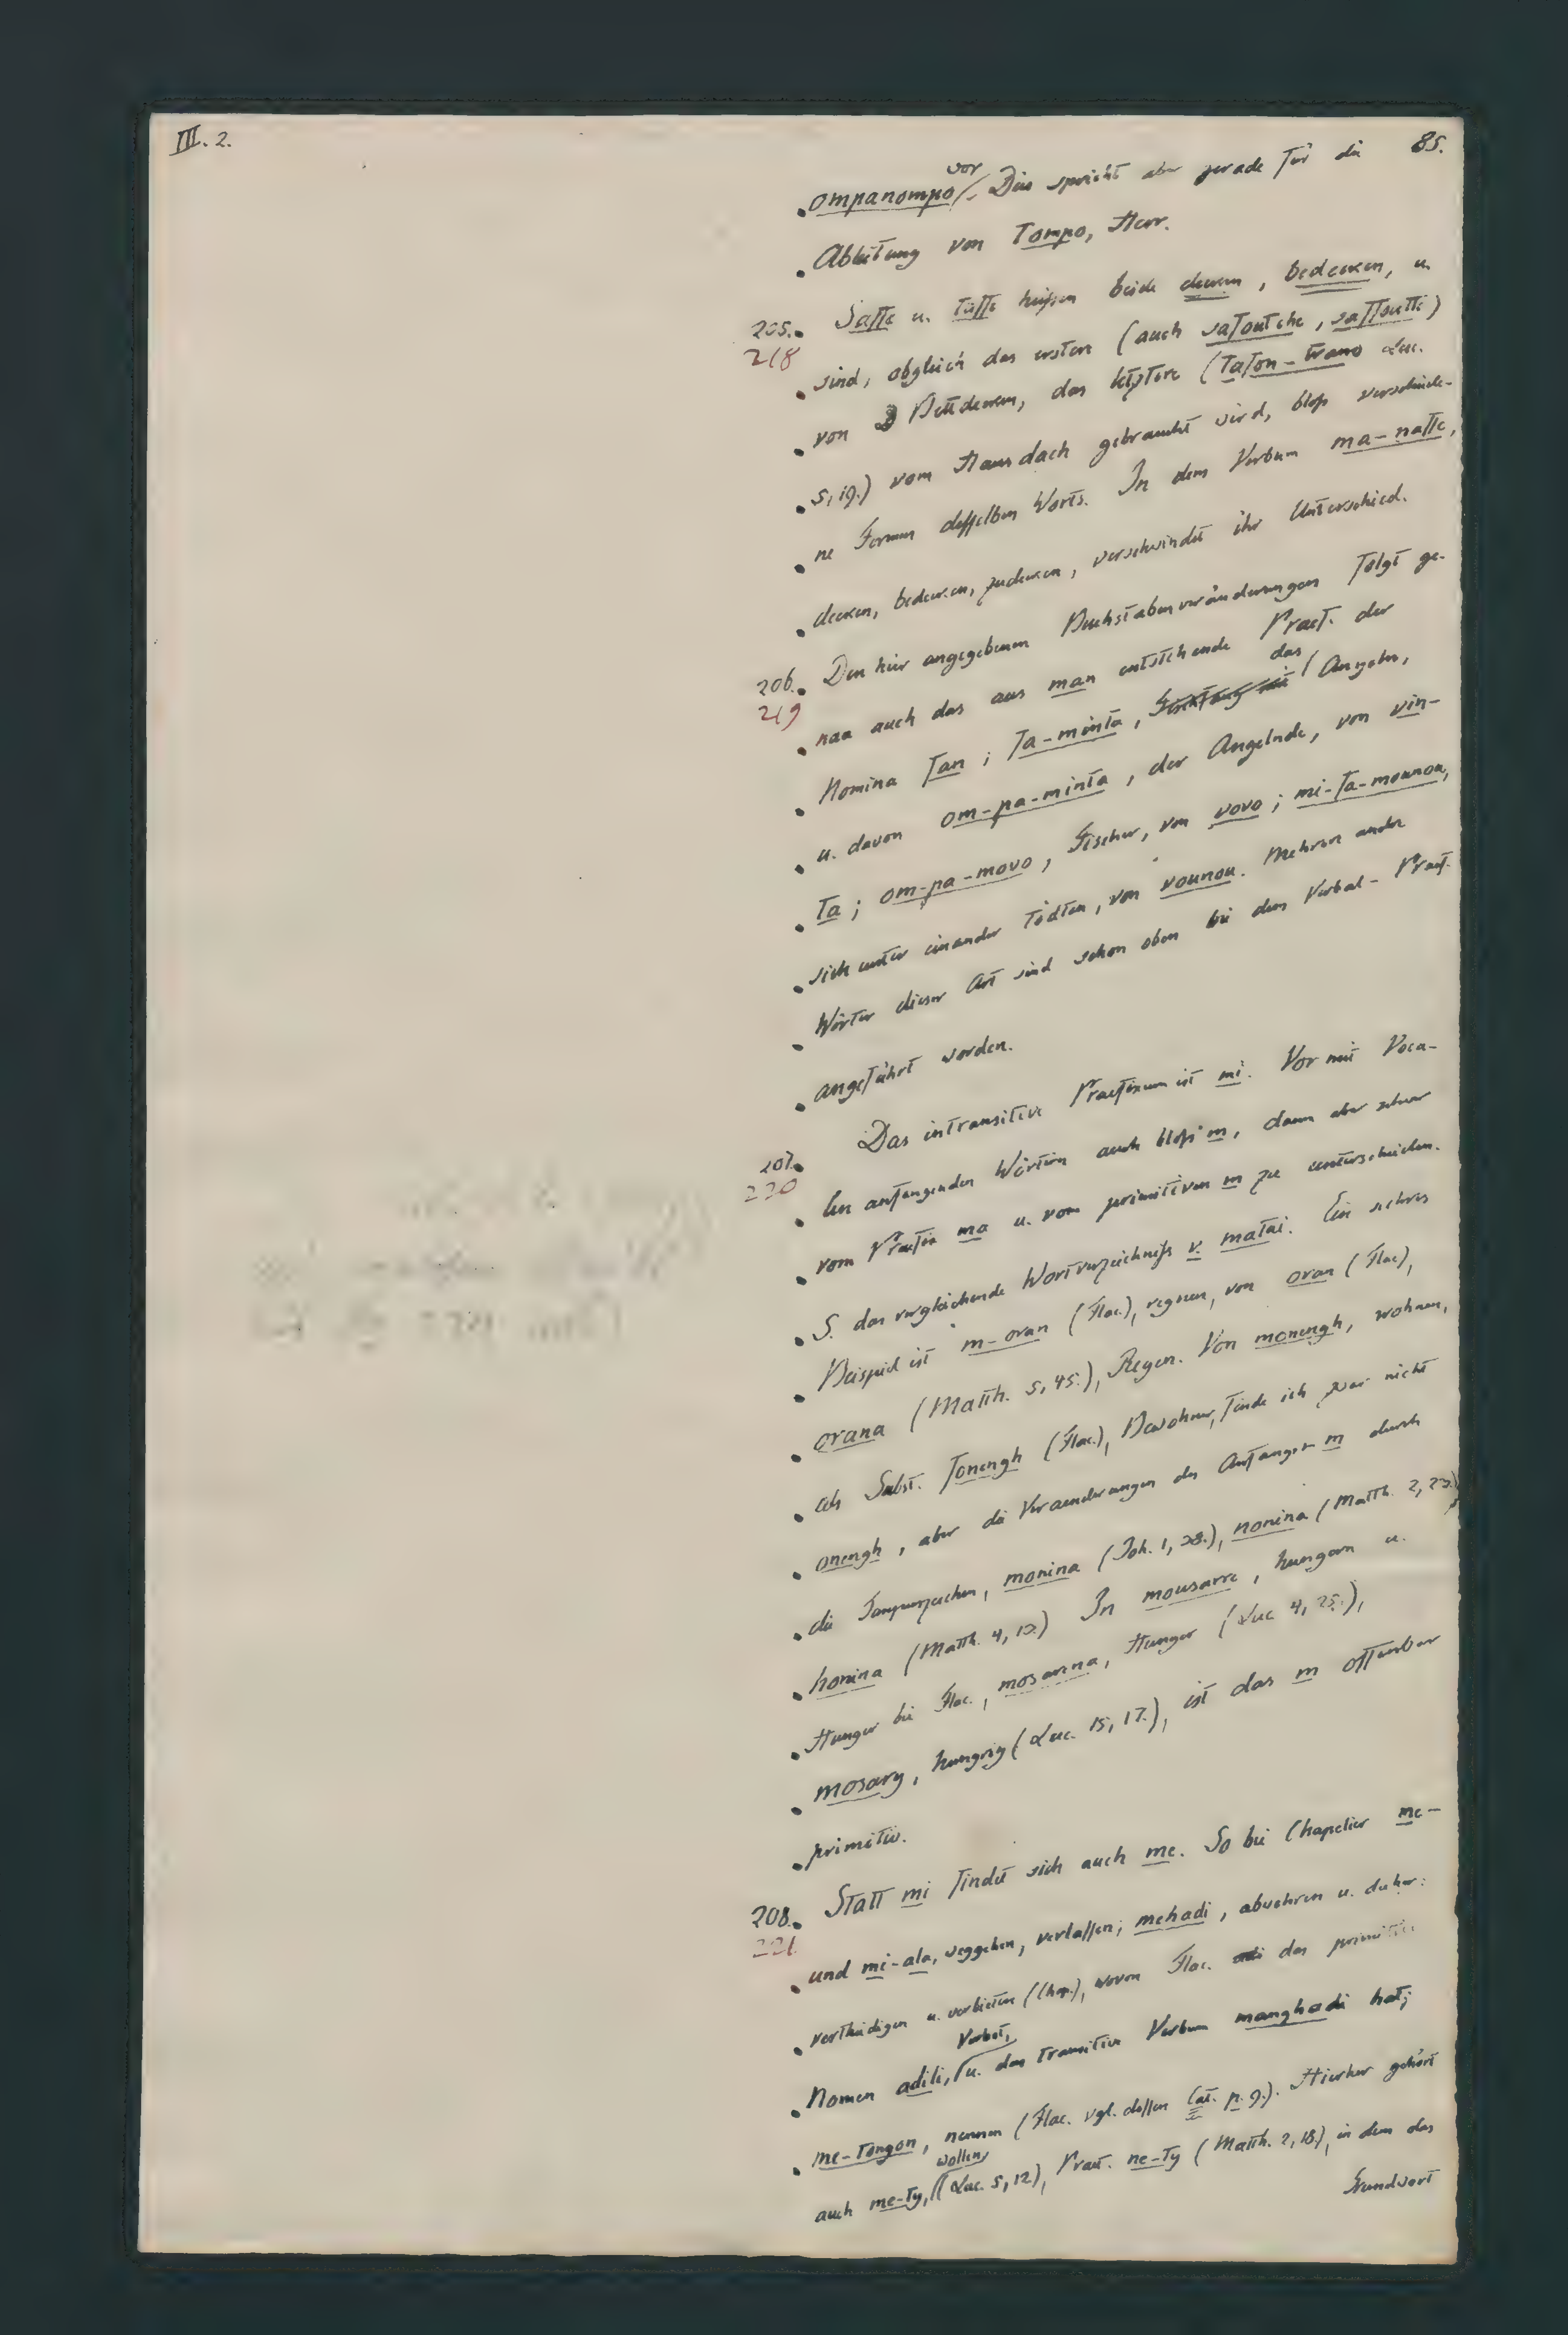 III. 2.
85.
ompanompo vor. Dies spricht aber gerade für die
Ableitung von Tompo, Herr.
205. Saffe u. taffe heißen beide decken, bedecken, u.
218
sind, obgleich das erstere (auch safoutche, saffoutti)
von Bettdecken, das letztere (tafon-trano Luc.
5, 19.) vom Hausdach gebraucht wird, bloß verschiede-
ne Formen desselben Worts. In dem Verbum ma-naffe,
decken, bedecken, zudecken, verschwindet ihr Unterschied.
206. Den hier angegebenen Buchstabenveränderungen folgt ge-
219
nau auch das aus man entstehende Praef. der
Nomina fan; fa-minta, das Angeln,
u. davon om-pa-minta, der Angelnde, von vin-
ta; om-pa-movo, Fischer, von vovo; mi-fa-mounou,
sich unter einander tödten, von vounou. Mehrere andre
Wörter dieser Art sind schon oben bei dem Verbal-Praef.
angeführt worden.
207. Das intransitive Praefixum ist mi. Vor mit Voca-
220
len anfangenden Wörtern auch bloß m, dann aber schwer
vom Praefix ma u. vom primitiven m zu unterscheiden.
S. das vergleichende Wortverzeichniß v. matai. Ein sichres
Beispiel ist m-oran (Flac.), regnen, von oran (Flac),
orana (Matth. 5, 45.), Regen. Von monengh, wohnen,
als Subst. fonengh (Flac.), Bewohner, finde ich zwar nicht
onengh, aber die Veraenderungen des Anfangs-m durch
die Tempuszeichen, monina (Joh. 1, 38.), nonina (Matth. 2, 23.)
honina (Matth. 4, 13.) In mousarre, hungern u.
Hunger bei Flac., mosarena, Hunger (Luc 4, 25.),
mosary, hungrig (Luc. 15, 17.), ist das m offenbar
primitiv.
208. Statt mi findet sich auch me. So bei Chapelier me-
221
und mi-ala, weggehen, verlassen; mehadi, abwehren u. daher:
vertheidigen u. verbieten (Chap.), wovon Flac. das primitive
Nomen adili, Verbot, u. das transitive Verbum manghadi hat;
me-tongon, nennen (Flac. vgl. dessen Cat. p. 9.). Hierher gehört
auch me-ty, wollen, (Luc. 5, 12), Praet. ne-ty (Matth. 2, 18), in dem das
Grundwort